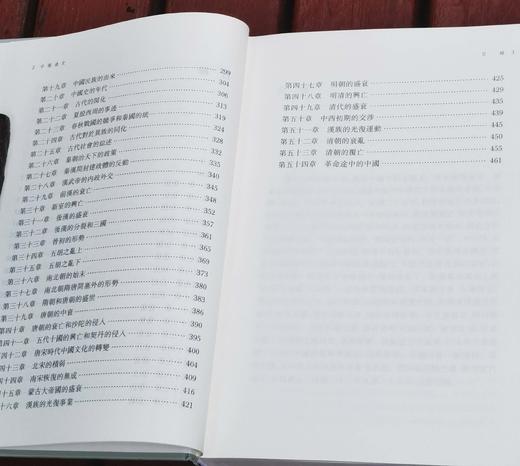 2 中國通史
第十九章 中國民族的由來 299
第二十章 中國史的年代 304
第二十一章 古代的開化 313
第二十二章 夏殷西周的事迹 319
第二十三章 春秋戰國的競爭和秦國的統一 324
第二十四章 古代對於異族的同化 329
第二十五章 古代社會的綜述 332
第二十六章 秦朝治天下的政策 335
第二十七章 秦漢間封建政體的反動 340
第二十八章 漢武帝的內政外交 345
第二十九章 前漢的衰亡 348
第三十章 新室的興亡 352
第三十一章 後漢的盛衰 357
第三十二章 後漢的分裂和三國 361
第三十三章 晉初的形勢 365
第三十四章 五胡之亂上 369
第三十五章 五胡之亂下 373
第三十六章 南北朝的始末 376
第三十七章 南北朝隋唐間塞外的形勢 380
第三十八章 隋朝和唐朝的盛世 383
第三十九章 唐朝的中衰 386
第四十章 唐朝的衰亡和沙陀的侵入 390
第四十一章 五代十國的興亡和契丹的侵入 395
第四十二章 唐宋時代中國文化的轉變 400
第四十三章 北宋的積弱 404
第四十四章 南宋恢復的無成 409
第四十五章 蒙古大帝國的盛衰 416
第四十六章 漢族的光復事業 421
目 錄
第四十七章 明朝的盛衰 425
第四十八章 明清的興亡 429
第四十九章 清代的盛衰 435
第五十章 中西初期的交涉 439
第五十一章 漢族的光復運動 445
第五十二章 清朝的衰亂 450
第五十三章 清朝的覆亡 455
第五十四章 革命途中的中國 461